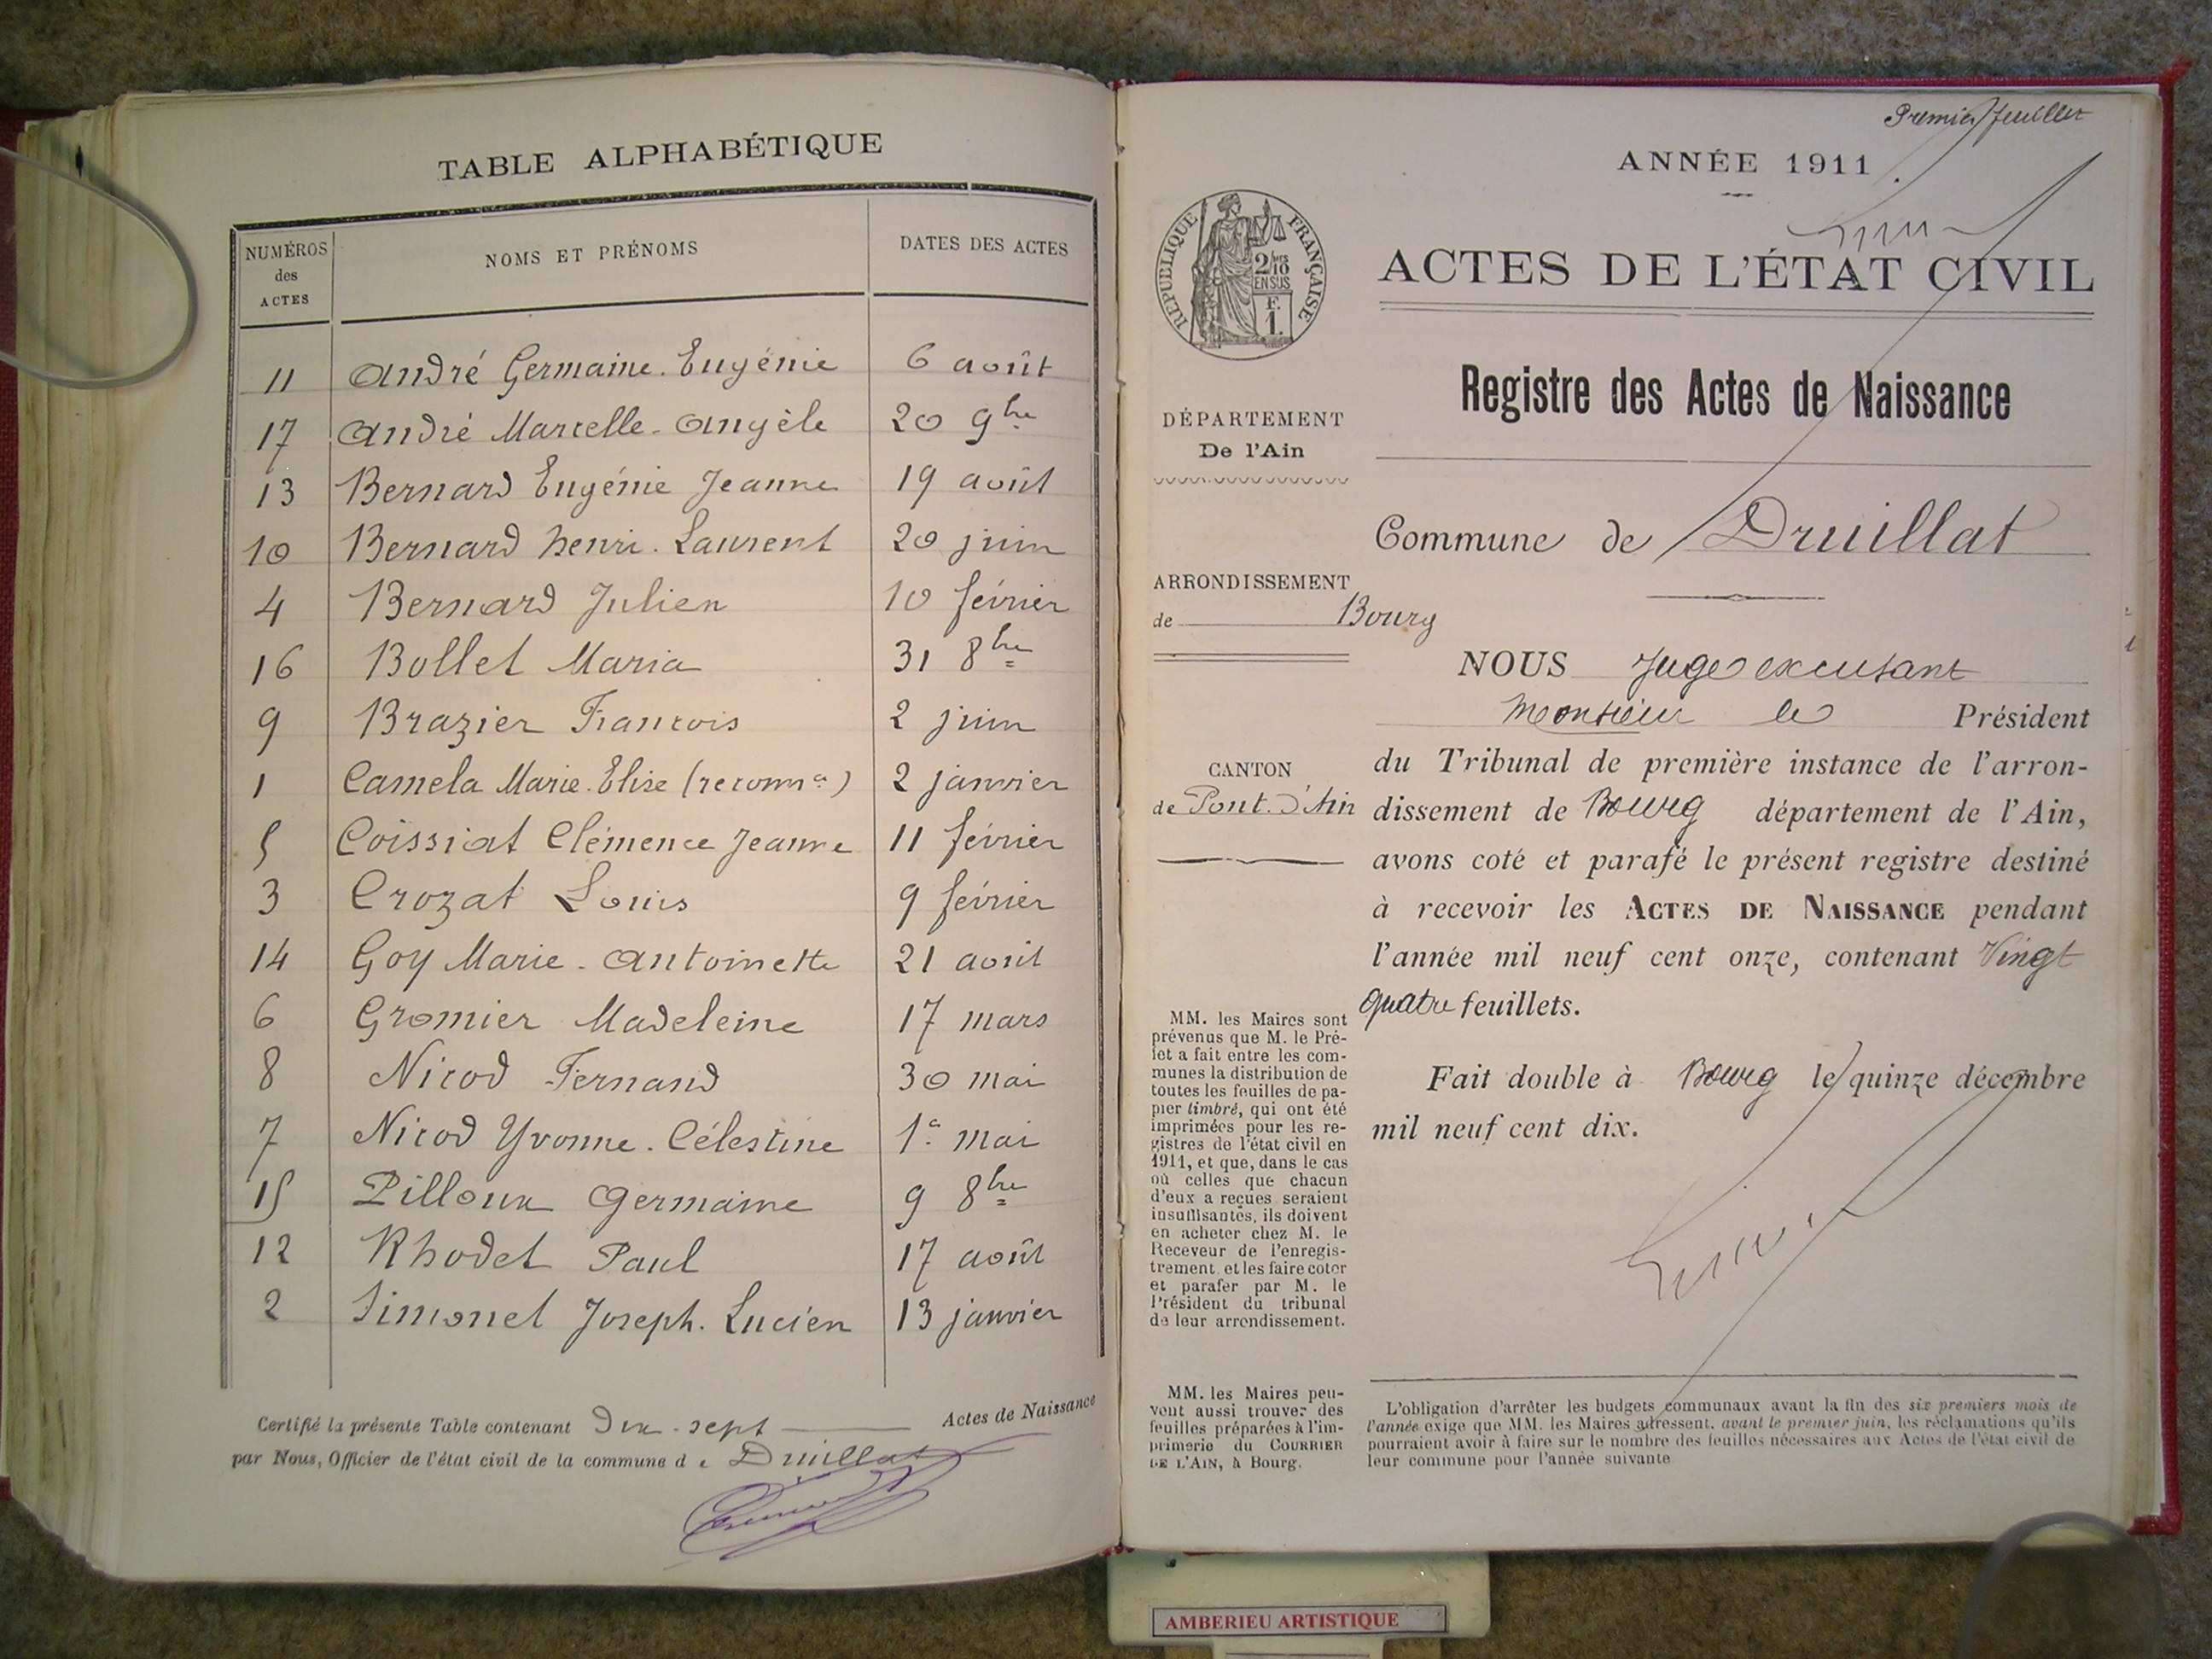 TABLE ALPHABÉTIQUE
NUMÉROS des ACTES NOMS ET PRÉNOMS DATES DES ACTES
11 André Germaine. Eugénie 6 août
17 André Marcelle-Angèle 20 9bre
13 Bernard Eugénie Jeanne 19 août
10 Bernard henri. Laurent 20 juin
4 Bernard Julien 10 février
16 Bollet Maria 31 8bre
9 Brazier Francois 2 juin
1 Camela Marie. Elise (reconnce) 2 janvier
5 Coissiat Clémence Jeanne 11 février
3 Crozat Louis 9 février
14 Goy Marie-Antoinette 21 août
6 Gromier Madeleine 17 mars
8 Nicod Fernand 30 mai
7 Nicod Yvonne. Célestine 1er mai
15 Pilloux Germaine 9 8bre
12 Rhodet Paul 17 août
2 Simonet Joseph. Lucien 13 janvier
Certifié la présente Table contenant Dix-sept Actes de Naissance
par Nous, Officier de l'état civil de la commune de Druillat
Premier feuillet
ANNÉE 1911
RÉPUBLIQUE FRANÇAISE
2/10
EN SUS
F.
1.
ACTES DE L'ÉTAT CIVIL
Registre des Actes de Naissance
DÉPARTEMENT
De l'Ain
Commune de Druillat
ARRONDISSEMENT
de Bourg
NOUS Juge excusant
Monsieur le Président
CANTON
de Pont-d'Ain
du Tribunal de première instance de l'arron-
dissement de Bourg département de l'Ain,
avons coté et parafé le présent registre destiné
à recevoir les ACTES DE NAISSANCE pendant
l'année mil neuf cent onze, contenant Vingt
quatre feuillets.
Fait double à Bourg le quinze décembre
mil neuf cent dix.
MM. les Maires sont
prévenus que M. le Pré-
fet a fait entre les com-
munes la distribution de
toutes les feuilles de pa-
pier timbré, qui ont été
imprimées pour les re-
gistres de l'état civil en
1911, et que, dans le cas
où celles que chacun
d'eux a reçues seraient
insuffisantes, ils doivent
en acheter chez M. le
Receveur de l'enregis-
trement et les faire coter
et parafer par M. le
Président du tribunal
de leur arrondissement.
MM. les Maires peu-
vent aussi trouver des
feuilles préparées à l'im-
primerie du COURRIER
DE L'AIN, à Bourg.
L'obligation d'arrêter les budgets communaux avant la fin des six premiers mois de
l'année exige que MM. les Maires adressent, avant le premier juin, les réclamations qu'ils
pourraient avoir à faire sur le nombre des feuilles nécessaires aux Actes de l'état civil de
leur commune pour l'année suivante
AMBERIEU ARTISTIQUE